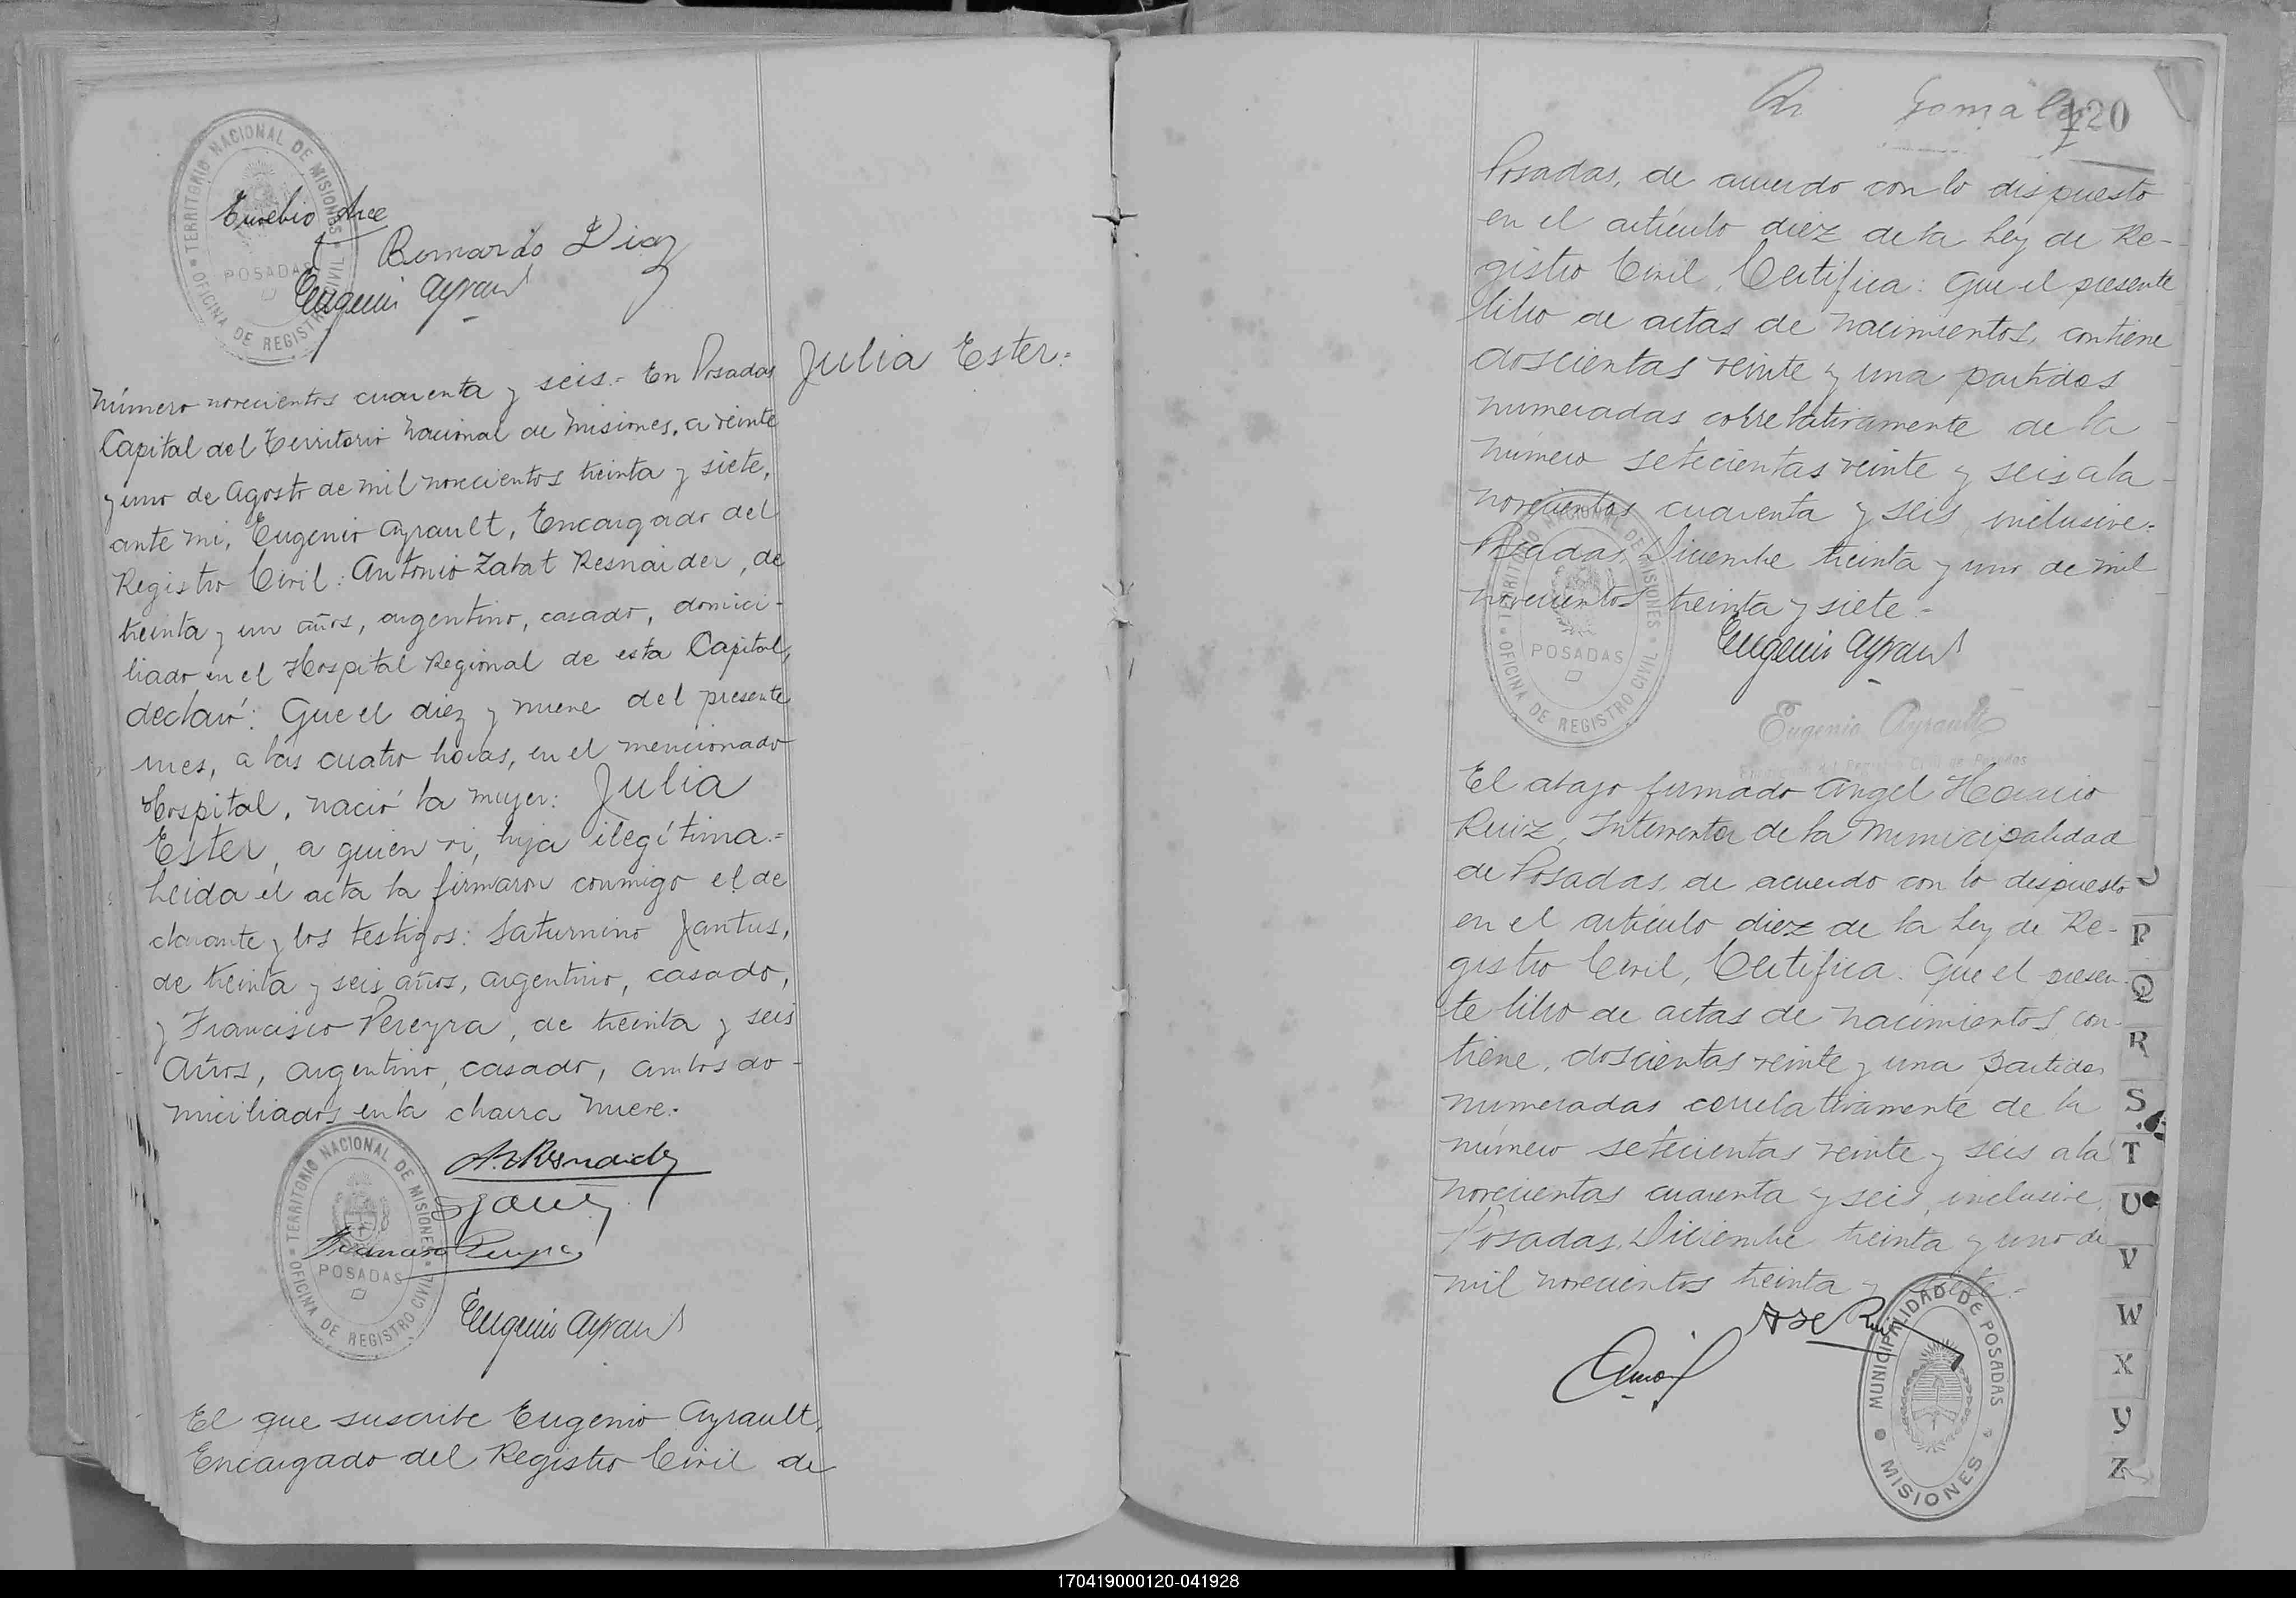 TERRITORIO NACIONAL DE MISIONES
OFICINA DE REGISTRO CIVIL
POSADAS
Eusebio Arce
Bernardo Diaz
Eugenio Ayrault
Número novecientos cuarenta y seis.- En Posadas
Julia Ester.=
Capital del Territorio Nacional de Misiones, a veinte
y uno de Agosto de mil novecientos treinta y siete,
ante mi, Eugenio Ayrault, Encargado del
Registro Civil: Antonio Zabat Resnaider, de
treinta y un años, argentino, casado, domici-
liado en el Hospital Regional de esta Capital,
declaró: Que el diez y nueve del presente
mes, a las cuatro horas, en el mencionado
Hospital, nació la mujer: Julia
Ester, a quien vi, hija ilegítima.=
Leida el acta la firmaron conmigo el de
clarante y los testigos: Saturnino Jantus,
de treinta y seis años, argentino, casado,
y Francisco Pereyra, de treinta y seis
años, argentino, casado, ambos do-
miciliados en la chacra nueve.-
TERRITORIO NACIONAL DE MISIONES
OFICINA DE REGISTRO CIVIL
POSADAS
Francisco Pereyra
Eugenio Ayrault
El que suscribe Eugenio Ayrault,
Encargado del Registro Civil de
120
Posadas, de acuerdo con lo dispuesto
en el artículo diez de la Ley de Re-
gistro Civil, Certifica: Que el presente
libro de actas de nacimientos, contiene
doscientas veinte y una partidas
numeradas correlativamente de la
número setecientas veinte y seis a la
novecientos cuarenta y seis, inclusive.
Posadas, Diciembre treinta y uno de mil
novecientos treinta y siete.-
TERRITORIO NACIONAL DE MISIONES
OFICINA DE REGISTRO CIVIL
POSADAS
Eugenio Ayrault
Eugenio Ayrault
Encargado del Registro Civil de Posadas
El abajo firmado Angel Horacio
Ruiz, Interventor de la Municipalidad
de Posadas, de acuerdo con lo dispuesto
en el artículo diez de la Ley de Re-
gistro Civil, Certifica: Que el presen-
te libro de actas de nacimientos, con-
tiene, doscientas veinte y una partidas
numeradas correlativamente de la
número setecientas veinte y seis a la
novecientas cuarenta y seis, inclusive.
Posadas, Diciembre treinta y uno de
mil novecientos treinta y siete.-
MUNICIPALIDAD DE POSADAS
MISIONES
P
Q
R
S
T
U
V
W
X
Y
Z
170419000120-041928